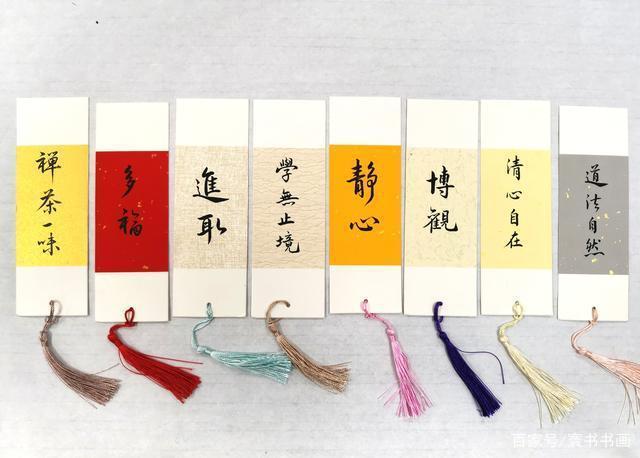 禅茶一味
多福
進取
學無止境
静心
博觀
清心自在
道法自然
百家号/袁书书画